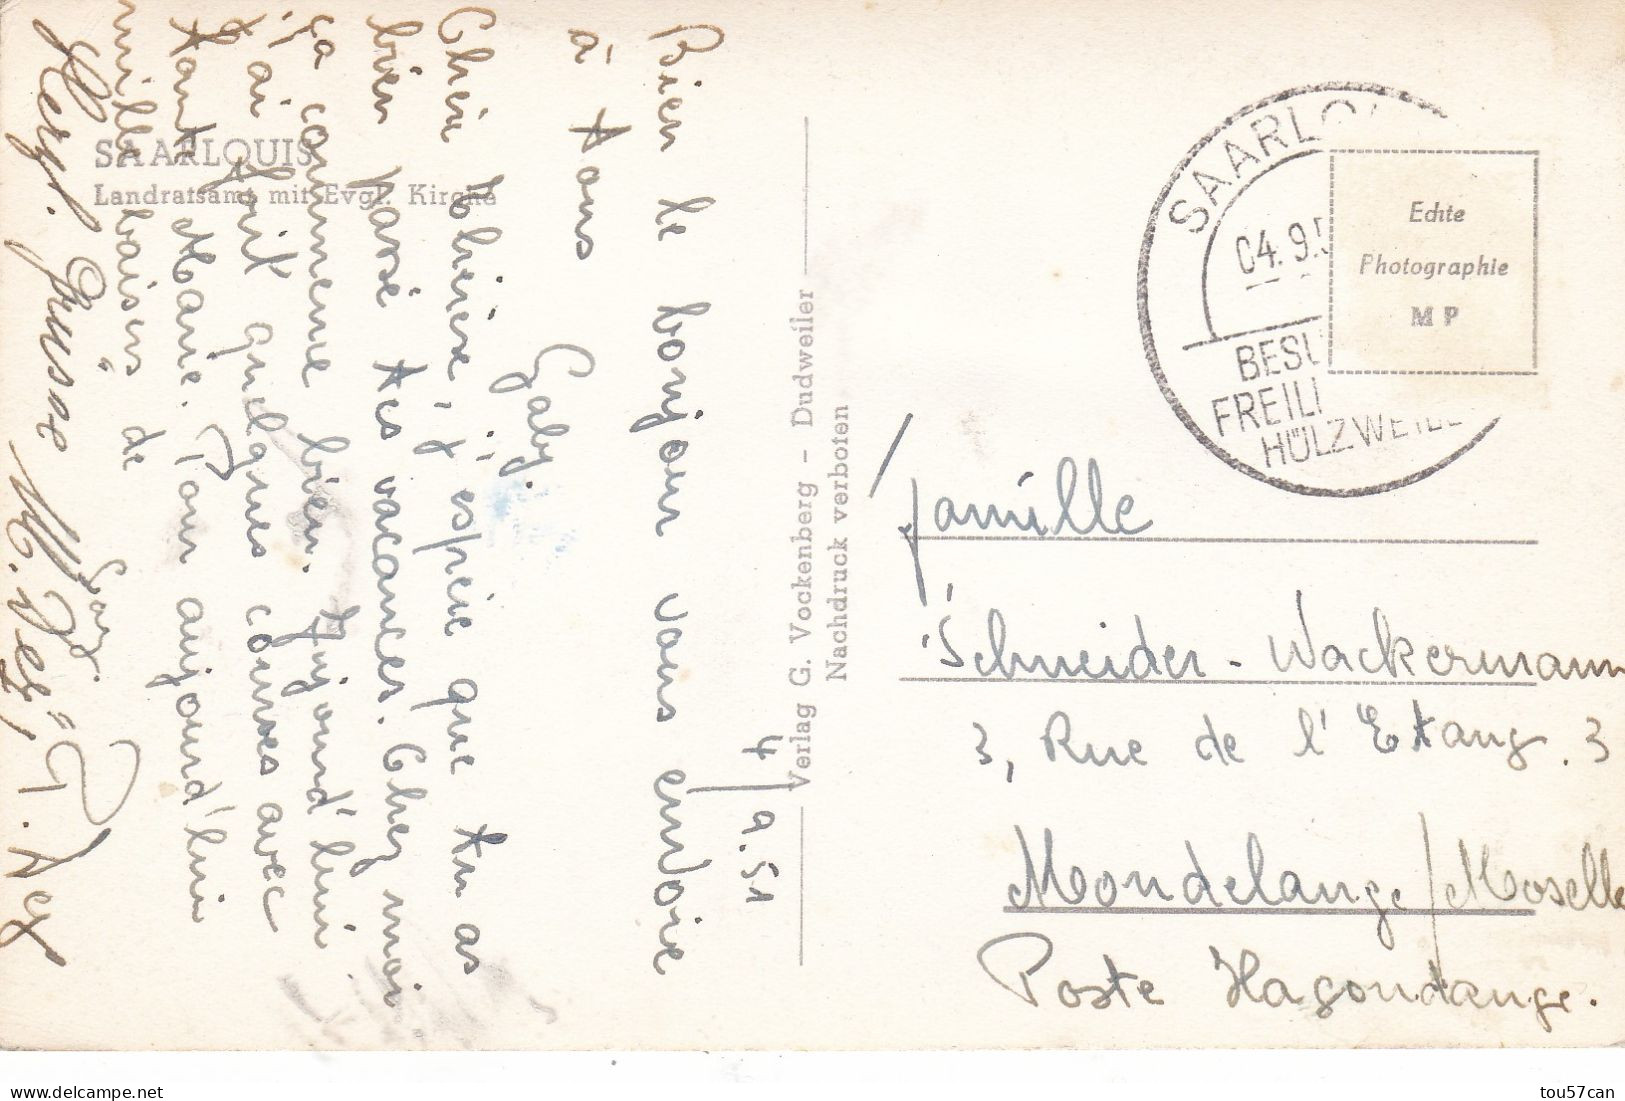 SAARLOUIS
Landratsamt mit Evgl. Kirche
4/9.51
Bien le bonjour vous envoie
à tous
Gaby.
j'espère que tu as
bien passé tes vacances. Chez moi
ça commence bien. Aujourd'hui
j'ai fait quelques courses avec
tante Marie. Pour aujourd'hui
mille baisers de
Gaby
Herzl. Grüsse
Verlag G. Vockenberg - Dudweiler
Nachdruck verboten
SAARLO
04.9.5
BESU
FREILI
HÜLZWEILE
Echte
Photographie
M P
Famille
Schneider-Wackermann
3, Rue de l'Etang. 3
Mondelange/Moselle
Poste Hagondange.
tou57can
delcampe.net